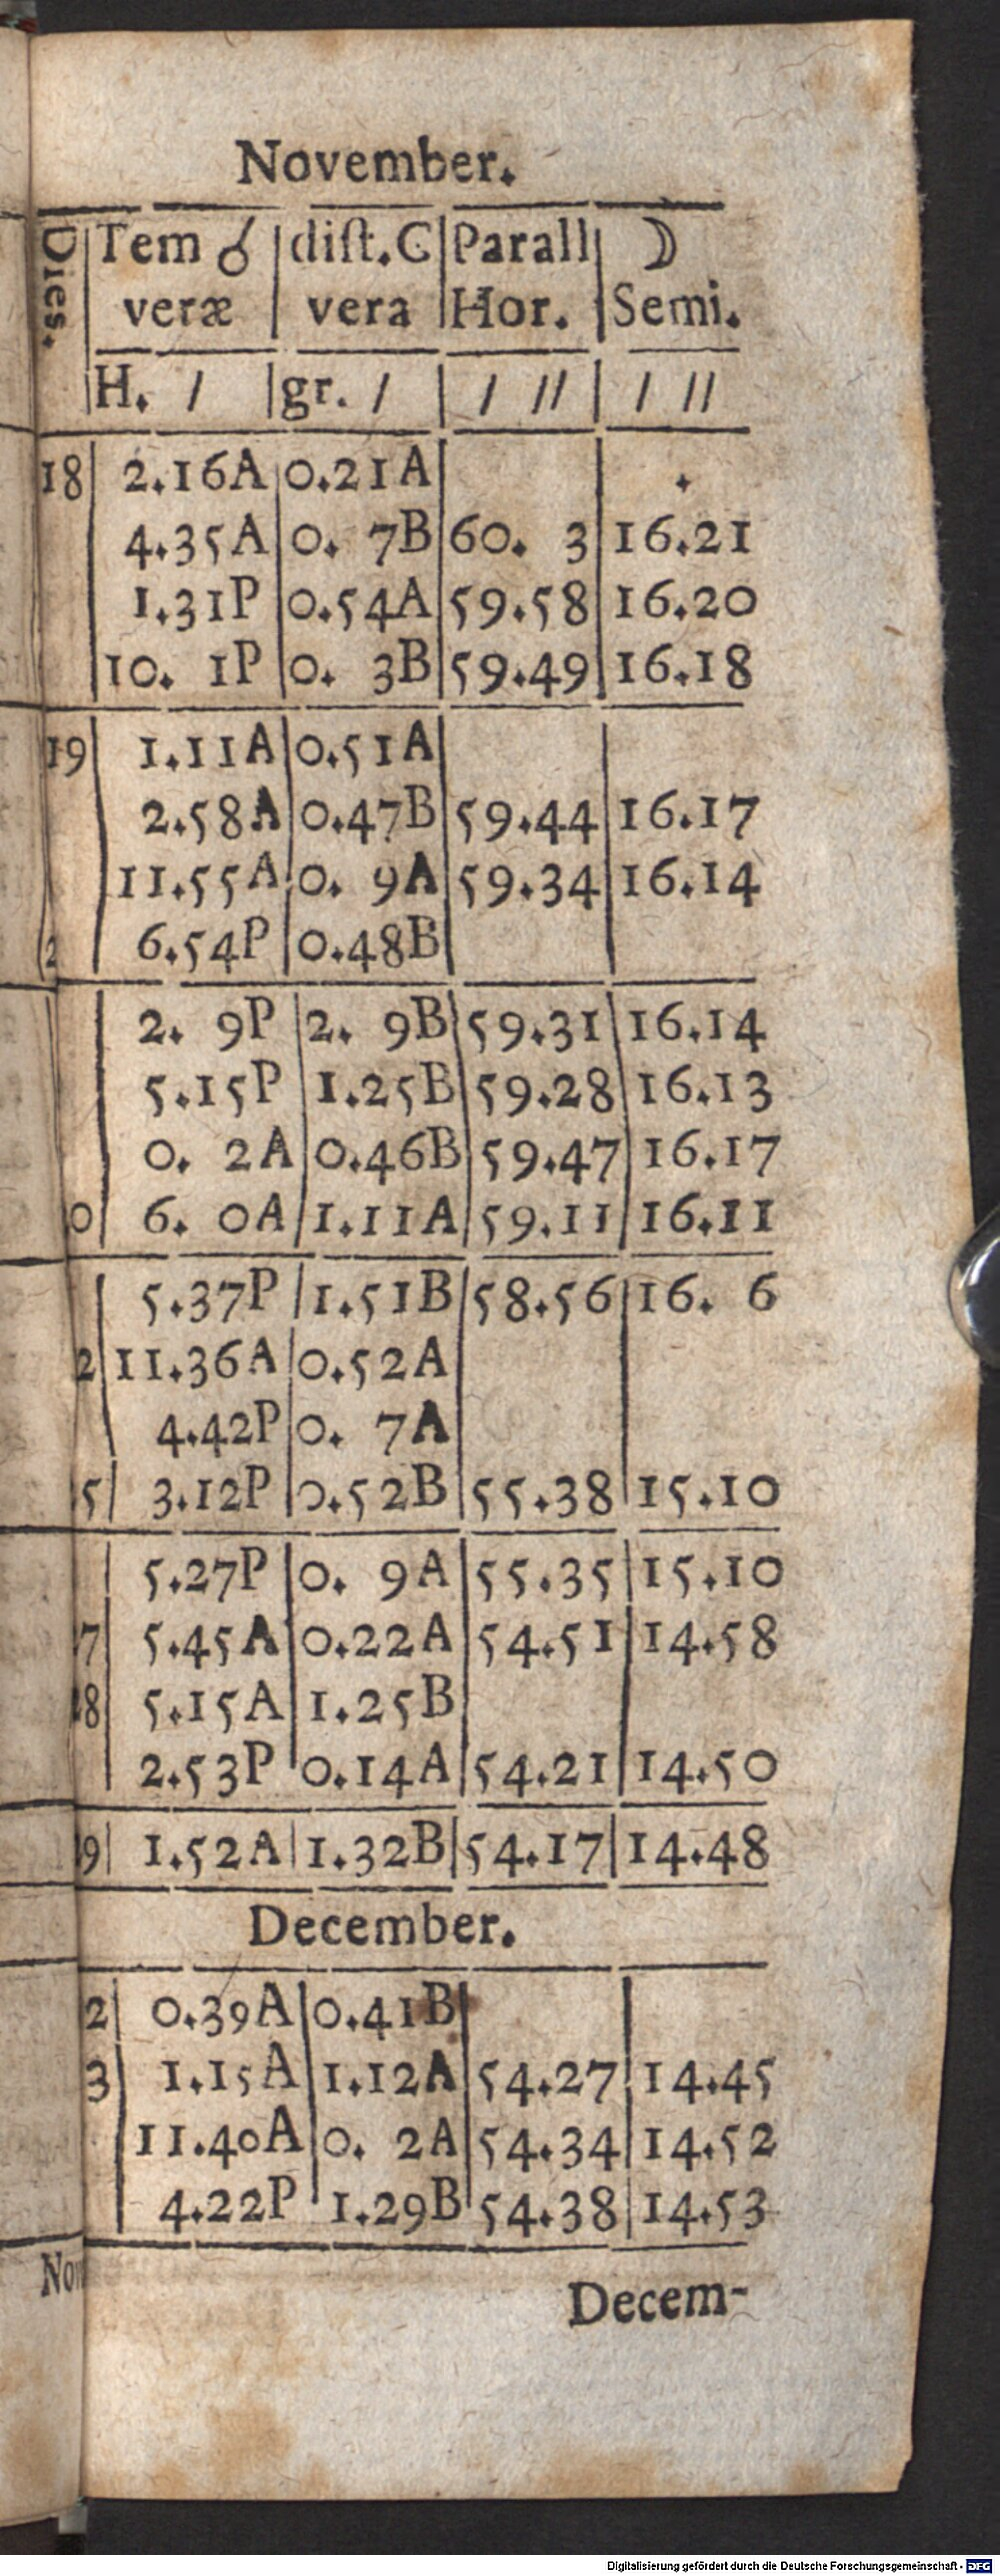 November.
Dies. Tem ☌ diſt.C Parall ☽
veræ vera Hor. Semi.
H. / gr. / / // / //
18 2.16A 0.21A
4.35A 0. 7B 60. 3 16.21
1.31P 0.54A 59.58 16.20
10. 1P 0. 3B 59.49 16.18
19 1.11A 0.51A
2.58A 0.47B 59.44 16.17
11.55A 0. 9A 59.34 16.14
2 6.54P 0.48B
2. 9P 2. 9B 59.31 16.14
5.15P 1.25B 59.28 16.13
0. 2A 0.46B 59.47 16.17
0 6. 0A 1.11A 59.11 16.11
5.37P 1.51B 58.56 16. 6
2 11.36A 0.52A
4.42P 0. 7A
5 3.12P 0.52B 55.38 15.10
5.27P 0. 9A 55.35 15.10
7 5.45A 0.22A 54.51 14.58
8 5.15A 1.25B
2.53P 0.14A 54.21 14.50
9 1.52A 1.32B 54.17 14.48
December.
2 0.39A 0.41B
3 1.15A 1.12A 54.27 14.45
11.40A 0. 2A 54.34 14.52
4.22P 1.29B 54.38 14.53
Decem-
Digitalisierung gefördert durch die Deutsche Forschungsgemeinschaft - DFG